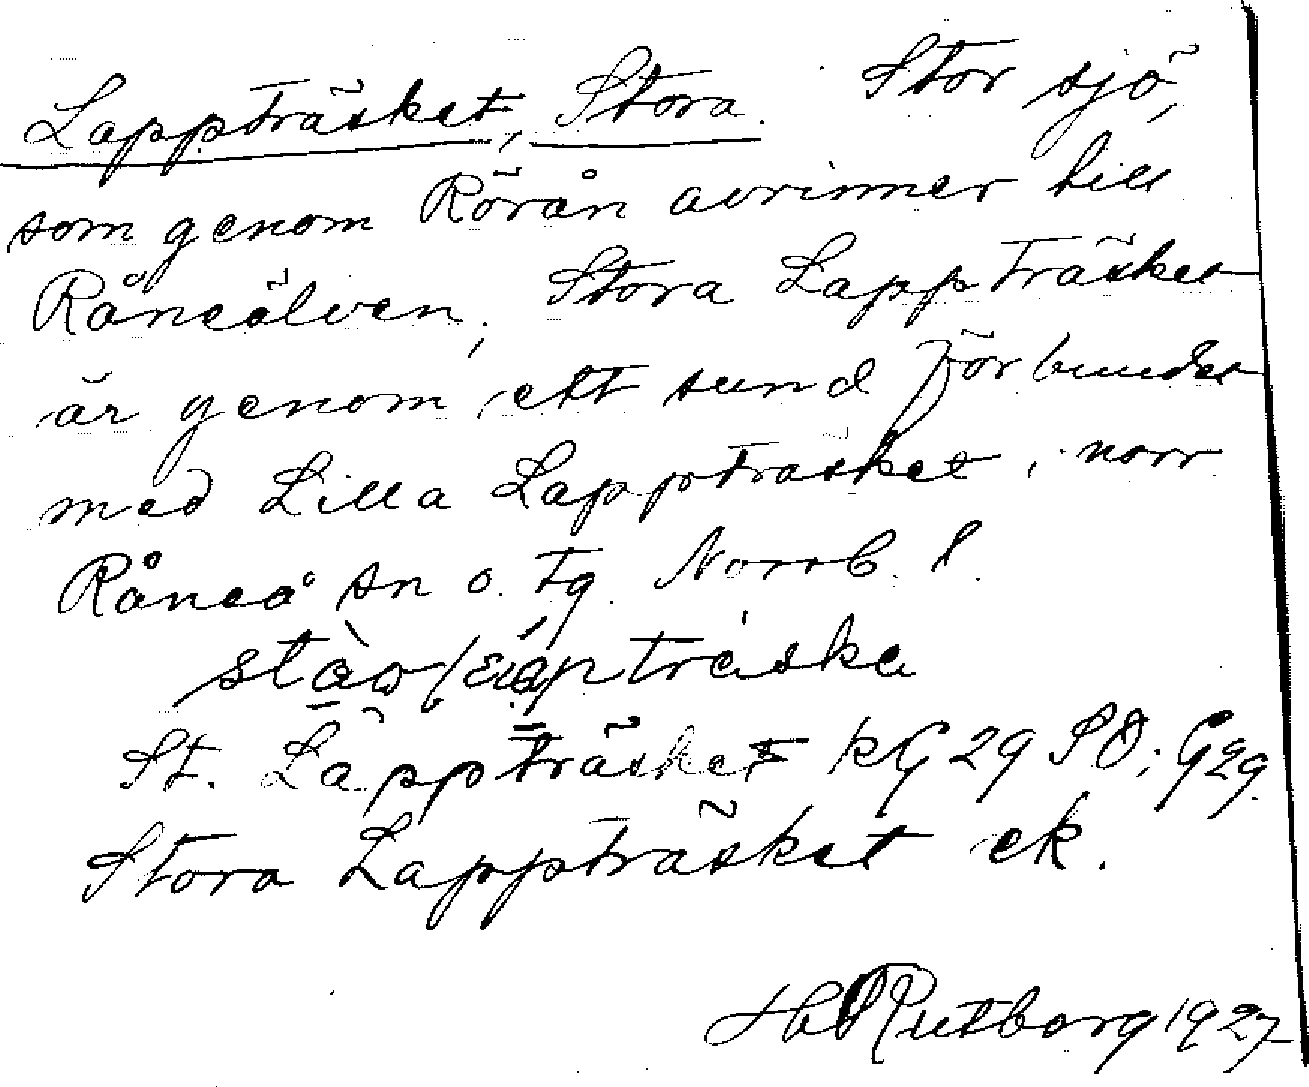 Lappträsket, Stora. Stor sjö,
som genom Rörån avrinner till
Råneälven; Stora Lappträsket
är genom ett sund förbundet
med Lilla Lappträsket, norr
Råneå sn o. tg. Norrb. l.
St. Lappträsket kG 29 SO; G29.
Stora Lappträsket ek.
Rutborg 1927